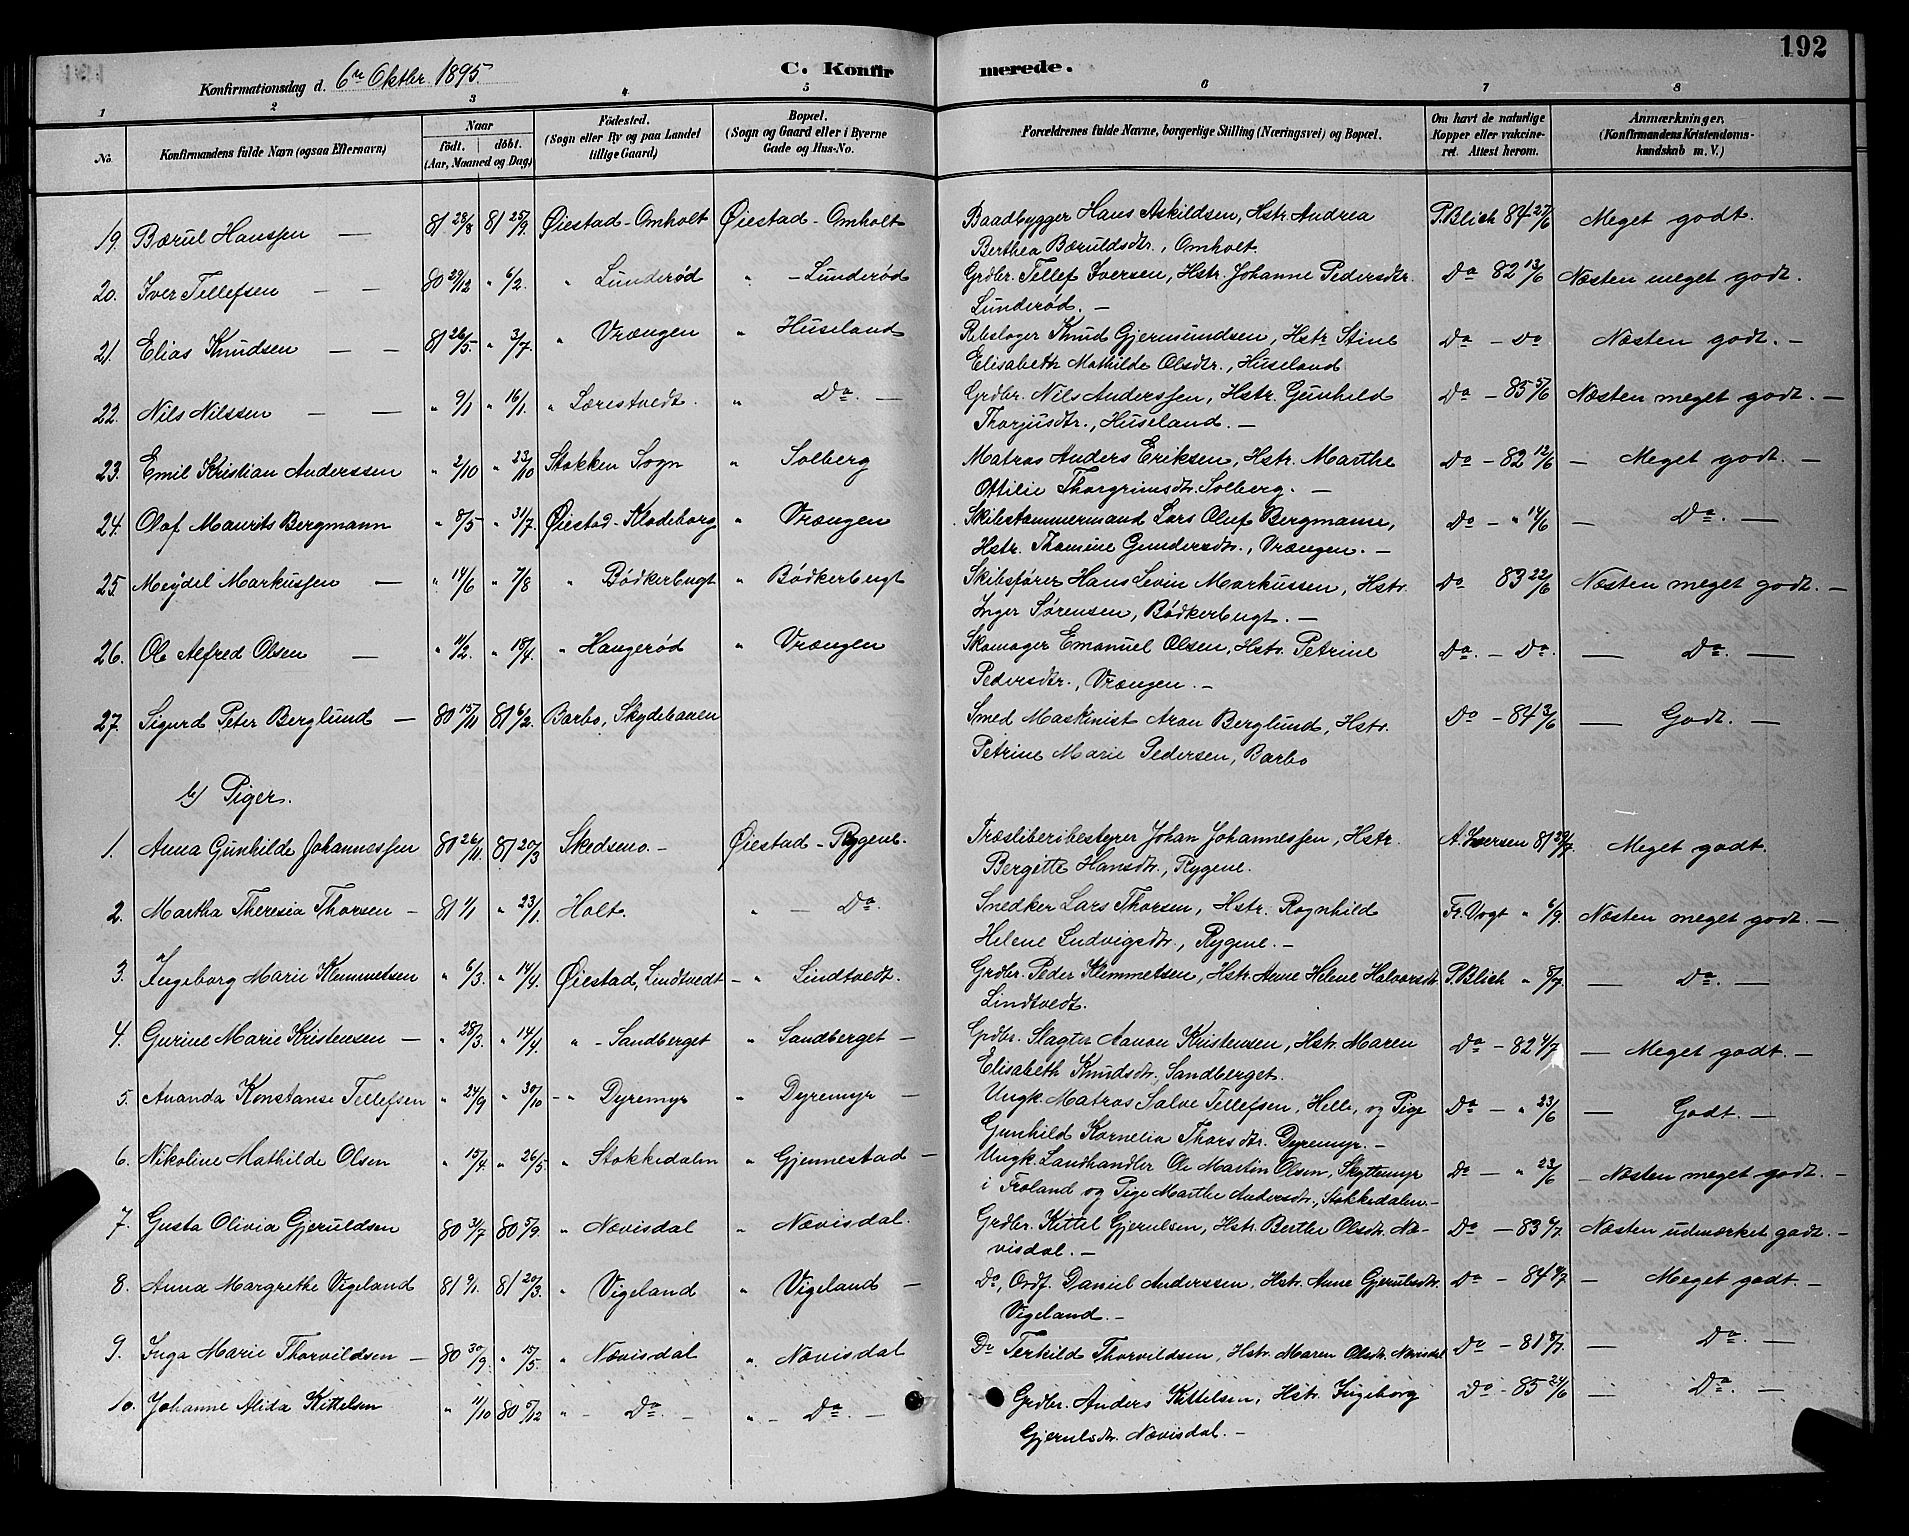 192
Konfirmationsdag d. 6te Oktbr. 1895. C. Konfirmerede.
1 2 3 4 5 6 7 8
No. Konfirmandens fulde Navn (ogsaa Efternavn) Naar födt. döbt. (Aar, Maaned og Dag) Födested. (Sogn eller By og paa Landet tillige Gaard) Bopæl. (Sogn og Gaard eller i Byerne Gade og Hus-No. Forældrenes fulde Navne, borgerlige Stilling (Næringsvei) og Bopæl. Om havt de naturlige Kopper eller vakcineret. Attest herom. Anmærkninger, (Konfirmandens Kristendomskundskab m. V.)
19. Bærul Hanssen — 81 28/8 81 25/9 Øiestad - Omholt Øiestad - Omholt Baadbygger Hans Askildsen, Hstr. Andrea P. Blich 84 27/6 Meget godt.
Berthea Bæruldsdtr., Omholt.
20. Iver Tellefsen — — 80 29/12 " 6/2. " Lunderød " - Lunderød Grdbr. Tellef Iversen, Hstr. Johanne Pedersdtr. Do 82 13/6 Næsten meget godt.
Lunderød. —
21. Elias Knudsen — — 81 26/5 " 3/7. " Vrængen " Huseland Rebslager Knud Gjermundsen, Hstr. Stine Do - Do Næsten godt. —
Elisabeth Mathilde Olsdtr., Huseland
22. Nils Nilssen — — " 9/1 " 16/1. " Lærestvedt. " Do. — Grdbr. Nils Anderssen, Hstr. Gunhild Do - 85 5/6 Næsten meget godt. —
Thorjusdtr., Huseland. —
23. Emil Kristian Anderssen " 2/10 " 23/10 Stokken Sogn " Solberg Matros Anders Eriksen, Hstr. Marthe Do - 82 12/6 — Meget godt. —
Ottilie Thorgrimsdtr. Solberg. —
24. Olaf Maurits Bergmann " 8/5 " 31/7. Øiestad - Klodeborg " Vrængen Skibstømmermand Lars Oluf Bergmann, Do - " 14/6 — Do. —
Hstr. Thomine Gundersdtr., Vrængen. —
25. Meydel Markussen — " 14/6 " 7/8 " Bödkerbugt " Bödkerbugt Skibsfører Hans Levin Markussen, Hstr. Do 83 22/6 Næsten meget godt. —
Inger Sørensen, Bødkerbugt. —
26. Ole Alfred Olsen — " 11/2. " 18/4. " Haugerød " Vrængen Skomager Emanuel Olsen, Hstr. Petrine Do. - Do. — Do. —
Pedersdtr., Vrængen. —
27. Sigurd Peter Berglund — 80 15/11 81 6/2. Barbo, Skydebanen Smed Maskinist Aron Berglund, Hstr. Do - 84 3/6 — Godt. —
Petrine Marie Pedersen, Barbo
b) Piger.
1. Anna Gunhilde Johannessen 80 26/11. 81 20/3 Skedsmo. — Øiestad - Rygene. Træsliberibestyrer Johan Johannessen, Hstr. A. Iversen 81 29/7. Meget godt.
Bergitte Hansdtr., Rygene.
2. Martha Theresia Thorsen — 81 1/1 " 23/1. Holt. " — Do. Snedker Lars Thorsen, Hstr. Ragnhild Fr. Vogt " 6/9. Næsten meget godt. —
Helene Ludvigsdtr., Rygene. —
3. Ingeborg Marie Klemmetsen " 6/3. " 14/4. Øiestad, Lindtvedt — " Lindtvedt. Grdbr. Peder Klemmetsen, Hstr. Anne Helene Halvorsdtr. P. Blich " 8/7. — Do. —
Lindtvedt.
4. Gurine Marie Kristensen — " 28/3. " 14/4. " - Sandberget " Sandberget — Grdbr. Slagter Aanon Kristensen, Hstr. Maren Do - 82 4/7 — Meget godt. —
Elisabeth Knudsdtr., Sandberget.
5. Ananda Konstanse Tellefsen " 24/9 " 30/10 - " Dyremyr " Dyremyr — Ungk. Matros Salve Tellefsen, Helle, og Pige Do — " 23/6 — Godt. —
Gunhild Kornelia Thorsdtr. Dyremyr. —
6. Nikoline Mathilde Olsen " 15/4 " 26/5 " Stokkedalen " Gjennestad — Ungk. Landhandler Ole Martin Olsen, Skyttemyr Do — " 23/6 — Næsten meget godt. —
i Froland og Pige Marthe Andersdtr., Stokkedalen —
7. Gusta Olivia Gjeruldsen 80 3/7 80 5/9. " Nævisdal " Nævisdal. Grdbr. Kittel Gjerulsen, Hstr. Berthe Olsdtr. Næ- Do — 83 6/7. Næsten udmærket godt. —
visdal. —
8. Anna Margrethe Vigeland 81 9/1. 81 20/3. " Vigeland " Vigeland — Do, Ordf. Daniel Anderssen, Hstr. Anne Gjerulsdtr. Do — 84 /7 — Meget godt. —
Vigeland. —
9. Inga Marie Thorvildsen — 80 30/9. " 15/5. " Nævisdal " Nævisdal Do Terkild Thorvildsen, Hstr. Maren Olsdtr. Nævisdal Do — 81 8/7. — Do. —
10. Johanne Alida Kittelsen " 11/10 80 5/12 " - Do. — " - Do. — Grdbr. Anders Kittelsen, Hstr. Ingeborg Do — 85 24/6 — Do. —
Gjerulsdtr. Nævisdal. —